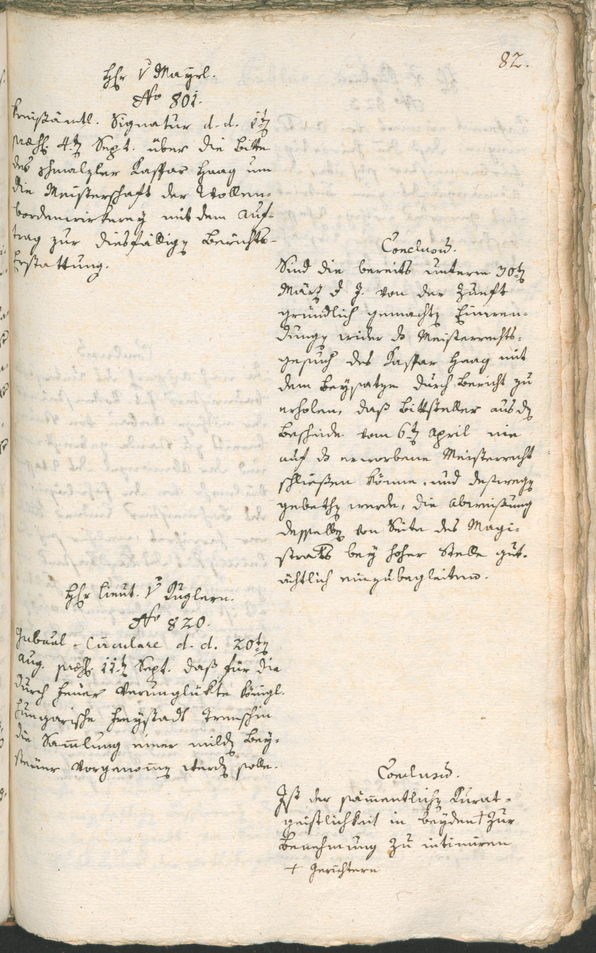 82.
Hr. v Mayrl.
No 801.
Kreisämtl. Signatur d. d. 1t
præs. 4t Sept. über die Bitte
des schmalzler Kaspar Haag um
die Meisterschaft der Wollen-
bordenwirkerey mit dem Auf-
trag zur diesfälligen Berichts-
Erstattung.
Conclusum.
Sind die bereits unterm 30t
März d. J. von der Zunft
gründlich gemachten Einwen-
dungen wider das Meisterrechts-
gesuch des Kaspar Haag mit
dem Beysatze durch Bericht zu
erholen, daß Bittsteller aus dem
Bescheide vom 6t April nie
auf das erworbene Meisterrecht
schließen könne, und deswegen
gebethen werde, die Abweisung
desselben von Seite des Magi-
strats bey hoher Stelle gut-
ächtlich einzubegleiten.
Hr. Lieut. v Kuglern.
No 820.
Gubnal-Circulare d. d. 20t
Aug. præs. 11t Sept. daß für die
durch Feuer verunglükte königl.
Hungarische Freystadt Trenschin
die Samlung einer milden Bey-
steuer vorgenommen werden solle.
Conclusum.
Ist der sämmentlichen Kurat-
geistlichkeit in beyden + zur
Benehmung zu intimiren
+ Gerichtern